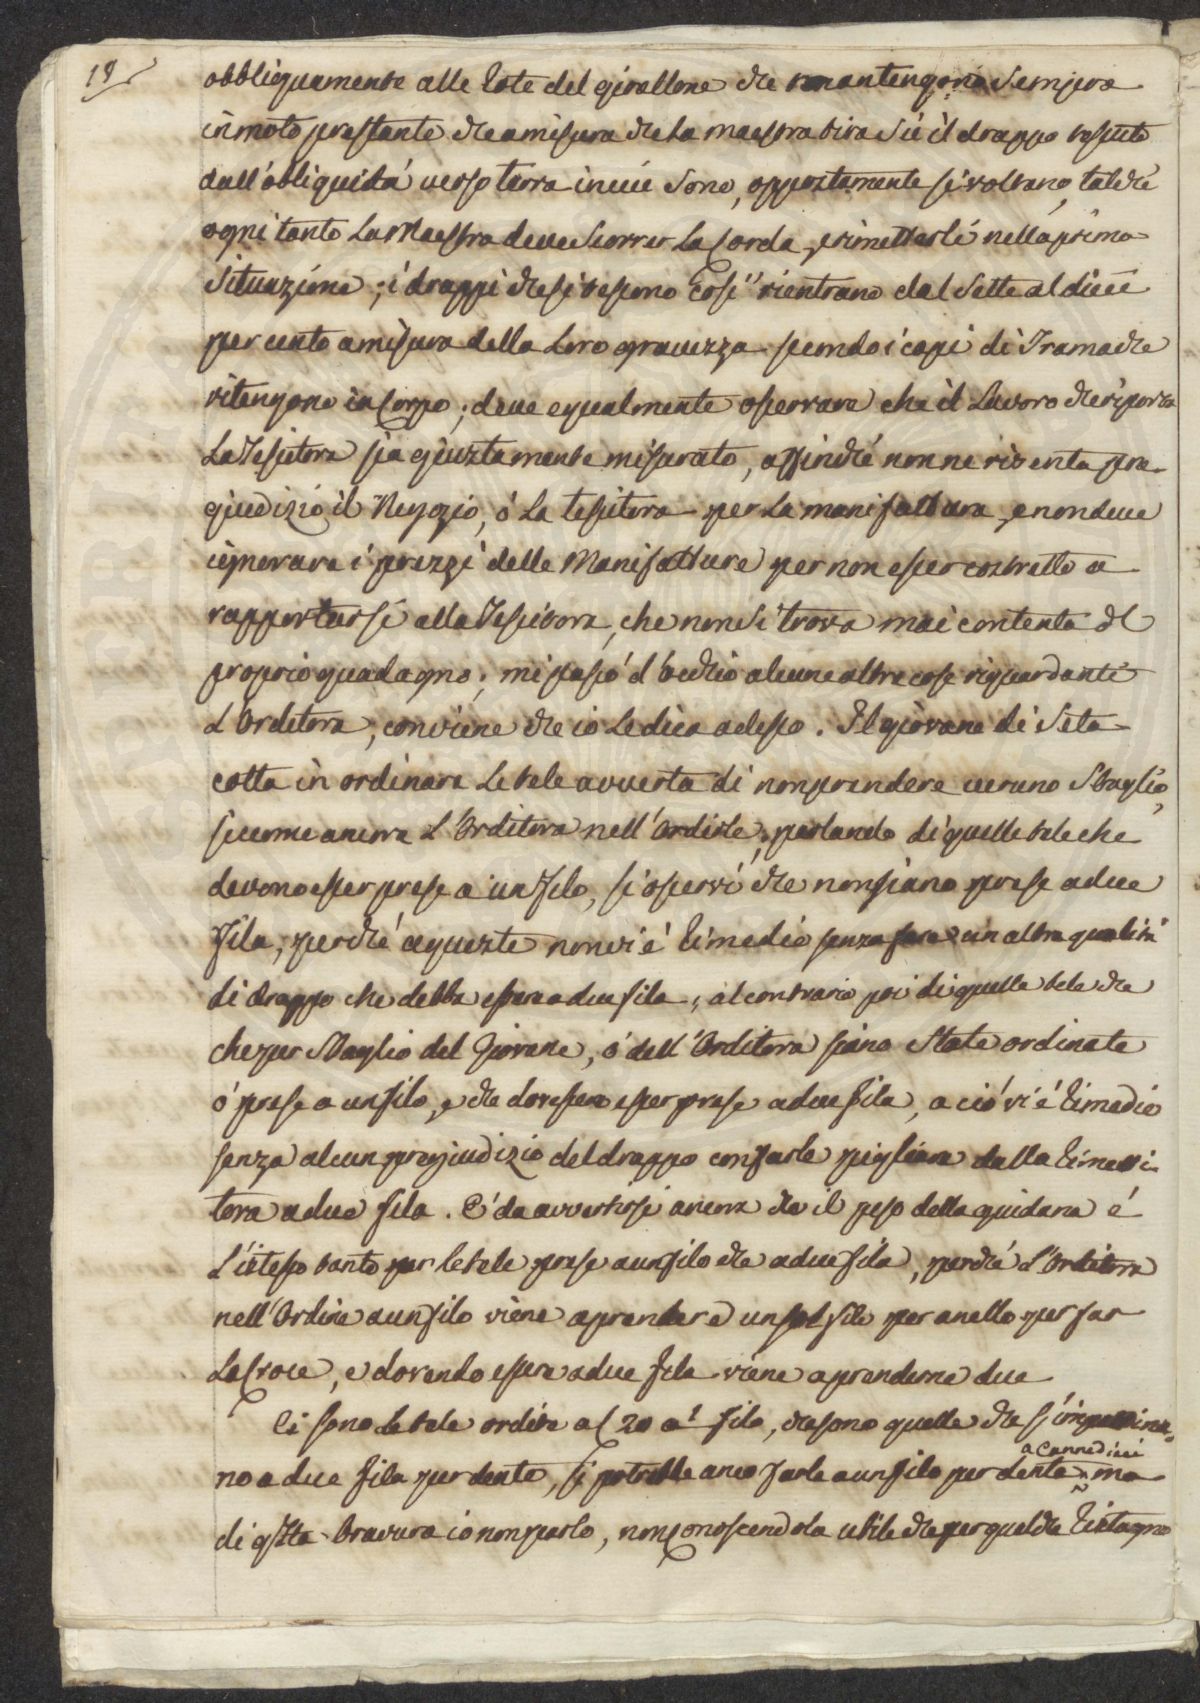 18
obbliquamente alle Rote del girellone che mantengono sempre
in moto prestante che a misura che la maestra tira sù il drappo tessuto
dall'obliquità verso terra in cui sono, oppostamente si voltano, tal chè
ogni tanto La Maestra deve scorrer La Corda, e rimetterli nella prima
situazione; i drappi che si tessono Così rientrano dal sette al dieci
per cento a misura della Loro gravezza secondo i capi di Trama che
ritengono in Corpo; deve egualmente osservare che il Lavoro che riporta
La Tessitora sia giustamente misurato, affinchè non ne risenta pre-
giudizio il Negozio, ó La tessitora per La manifattura, e non deve
ignorare i prezzi delle Manifatture per non esser costretto a
rapportarsi alla Tessitora, che non si trova mai contenta del
proprio guadagno; mi passó d'occhio alcune altre cose riguardanti
L'Orditora, conviene che io Le dica adesso. Il giovane di Seta
cotta in ordinare Le tele avverta di non prendere veruno Sbaglio,
siccome ancora L'Orditora nell'Ordirle, parlando di quelle tele che
devono esser prese a un filo, si osservi che non siano prese a due
fila, perchè a queste non vi é Rimedio senza fare un altra qualità
di drappo che debba essere a due fila; al contrario poi di quelle tele che
che per Sbaglio del Giovane, ó dell'Orditora siano State ordinate
ó prese a un filo, e che dovessero esser prese a due fila, a ció vi é Rimedio
senza alcun pregiudizio del drappo con farle pigliare dalla Rimetti-
tora a due fila. É da avvertirsi ancora che il peso della guidana é
L'istesso tanto per le tele prese a un filo che a due fila, perchè L'Orditora
nell'Ordire a un filo viene a prendere un sol filo per anello per far
La Croce, e dovendo essere a due fila viene a prenderne due
Ci sono le tele ordite a C 20 a 1 filo, che sono quelle che s'impettina-
no a due fila per dente, si potrebbe anco farle a un filo per dente a Canne dieci ma
di qsta bravura io non parlo, non conoscendola utile che per quel che Ristagno